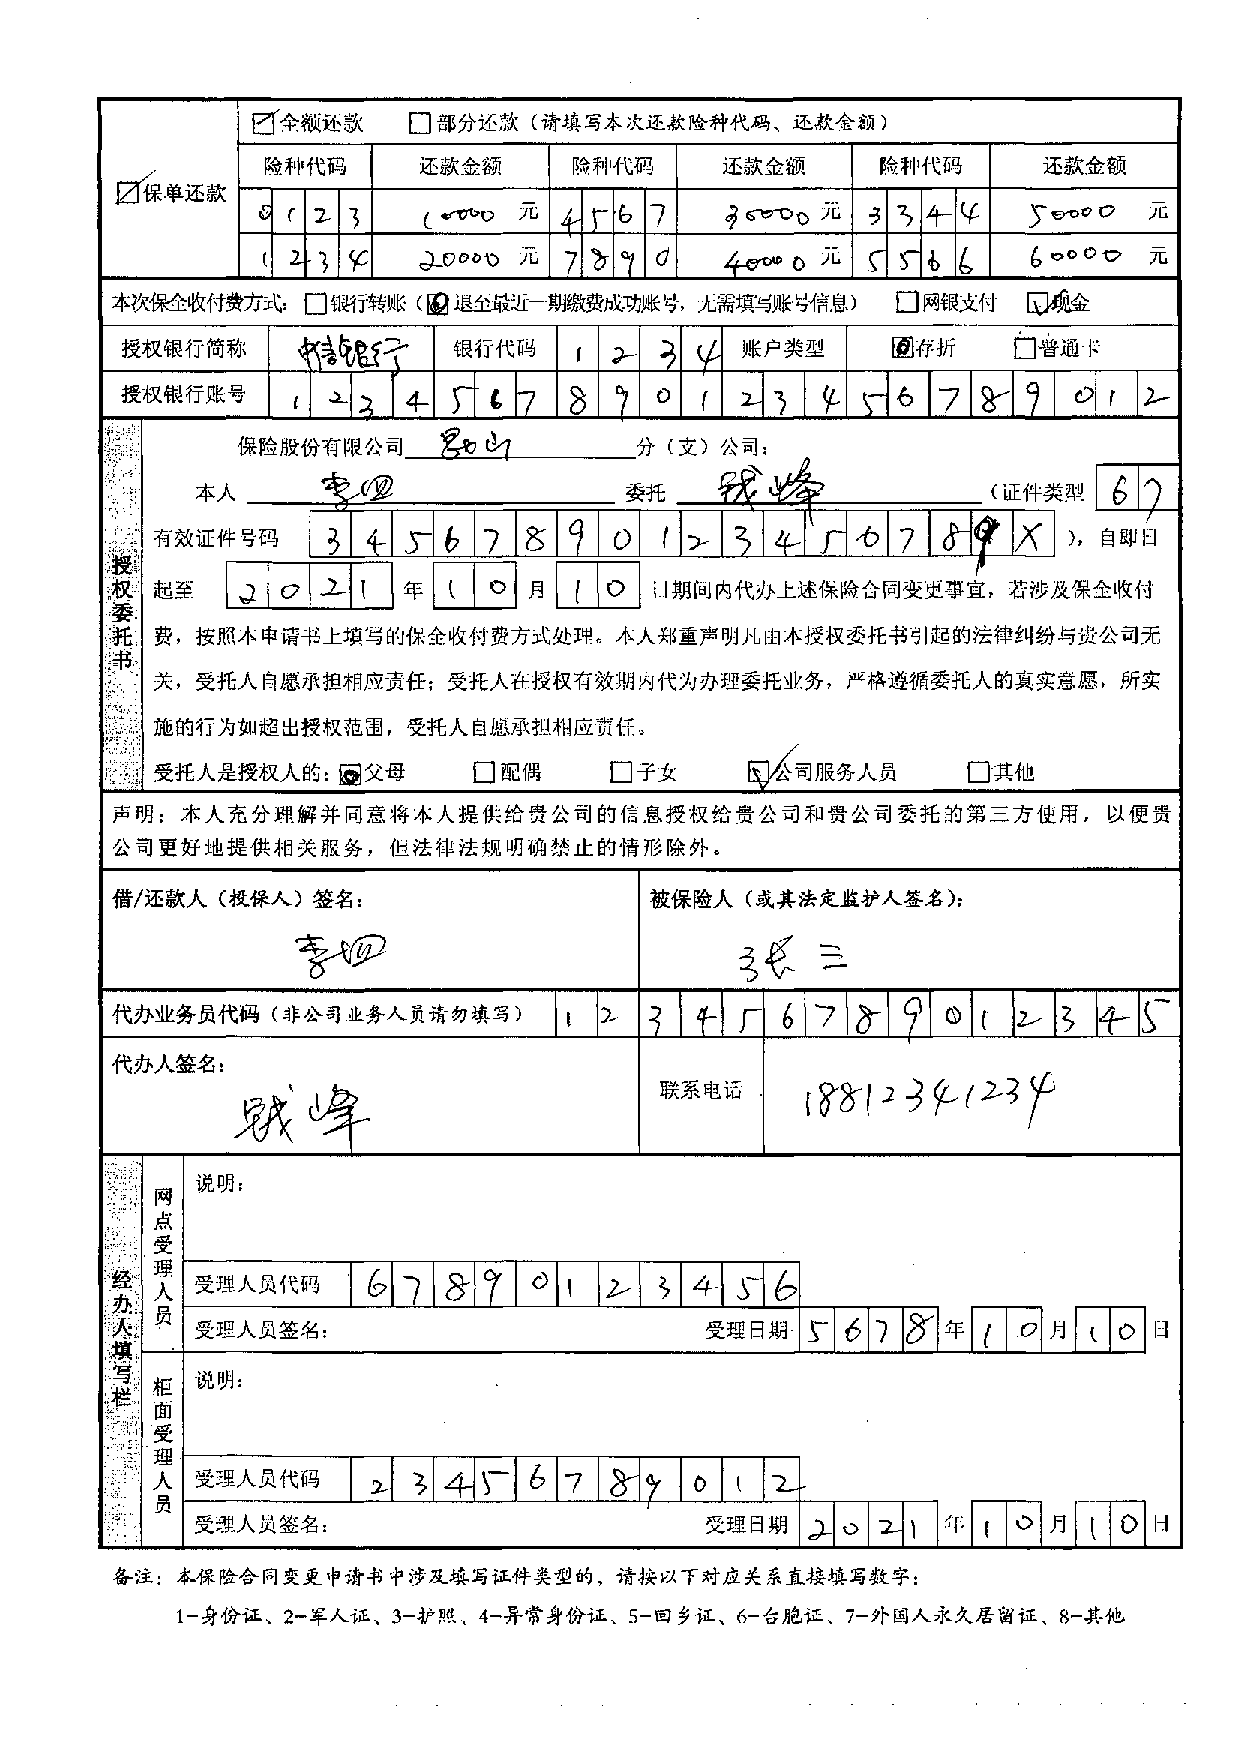 ☑全额还款 □部分还款（请填写本次还款险种代码、还款金额）
☑保单还款
险种代码 还款金额 险种代码 还款金额 险种代码 还款金额
0123 10000 元 4567 30000 元 3344 50000 元
1234 20000 元 7890 40000 元 5566 60000 元
本次保全收付费方式：□银行转账（退至最近一期缴费成功账号，无需填写账号信息） □网银支付 ☑现金
授权银行简称 中信银行 银行代码 1234 账户类型 存折 □普通卡
授权银行账号 1234567890123456789012
授权委托书
保险股份有限公司 昆山 分（支）公司：
本人 李四 委托 钱峰 （证件类型 67
有效证件号码 34567890123456789X ），自即日
起至 2021 年 10 月 10 日期间内代办上述保险合同变更事宜，若涉及保全收付
费，按照本申请书上填写的保全收付费方式处理。本人郑重声明凡由本授权委托书引起的法律纠纷与贵公司无
关，受托人自愿承担相应责任；受托人在授权有效期内代为办理委托业务，严格遵循委托人的真实意愿，所实
施的行为如超出授权范围，受托人自愿承担相应责任。
受托人是授权人的：父母 □配偶 □子女 ☑公司服务人员 □其他
声明：本人充分理解并同意将本人提供给贵公司的信息授权给贵公司和贵公司委托的第三方使用，以便贵
公司更好地提供相关服务，但法律法规明确禁止的情形除外。
借/还款人（投保人）签名： 被保险人（或其法定监护人签名）：
李四 张三
代办业务员代码（非公司业务人员请勿填写） 123456789012345
代办人签名：
钱峰 联系电话 18812341234
经办人填写栏
网点受理人员
说明：
受理人员代码 67890123456
受理人员签名： 受理日期 5678 年 10 月 10 日
柜面受理人员
说明：
受理人员代码 23456789012
受理人员签名： 受理日期 2021 年 10 月 10 日
备注：本保险合同变更申请书中涉及填写证件类型的，请按以下对应关系直接填写数字：
1-身份证、2-军人证、3-护照、4-异常身份证、5-回乡证、6-台胞证、7-外国人永久居留证、8-其他